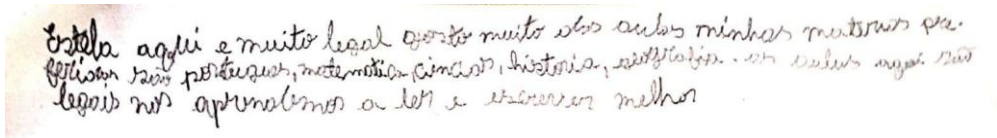 Estela aqui e muito legal gosto muito das aulas minhas materias pre-
feridas são portugues, matematica, ciencias, historia, geografia. as aulas aqui são
legais nós aprendemos a ler e escrever melhor